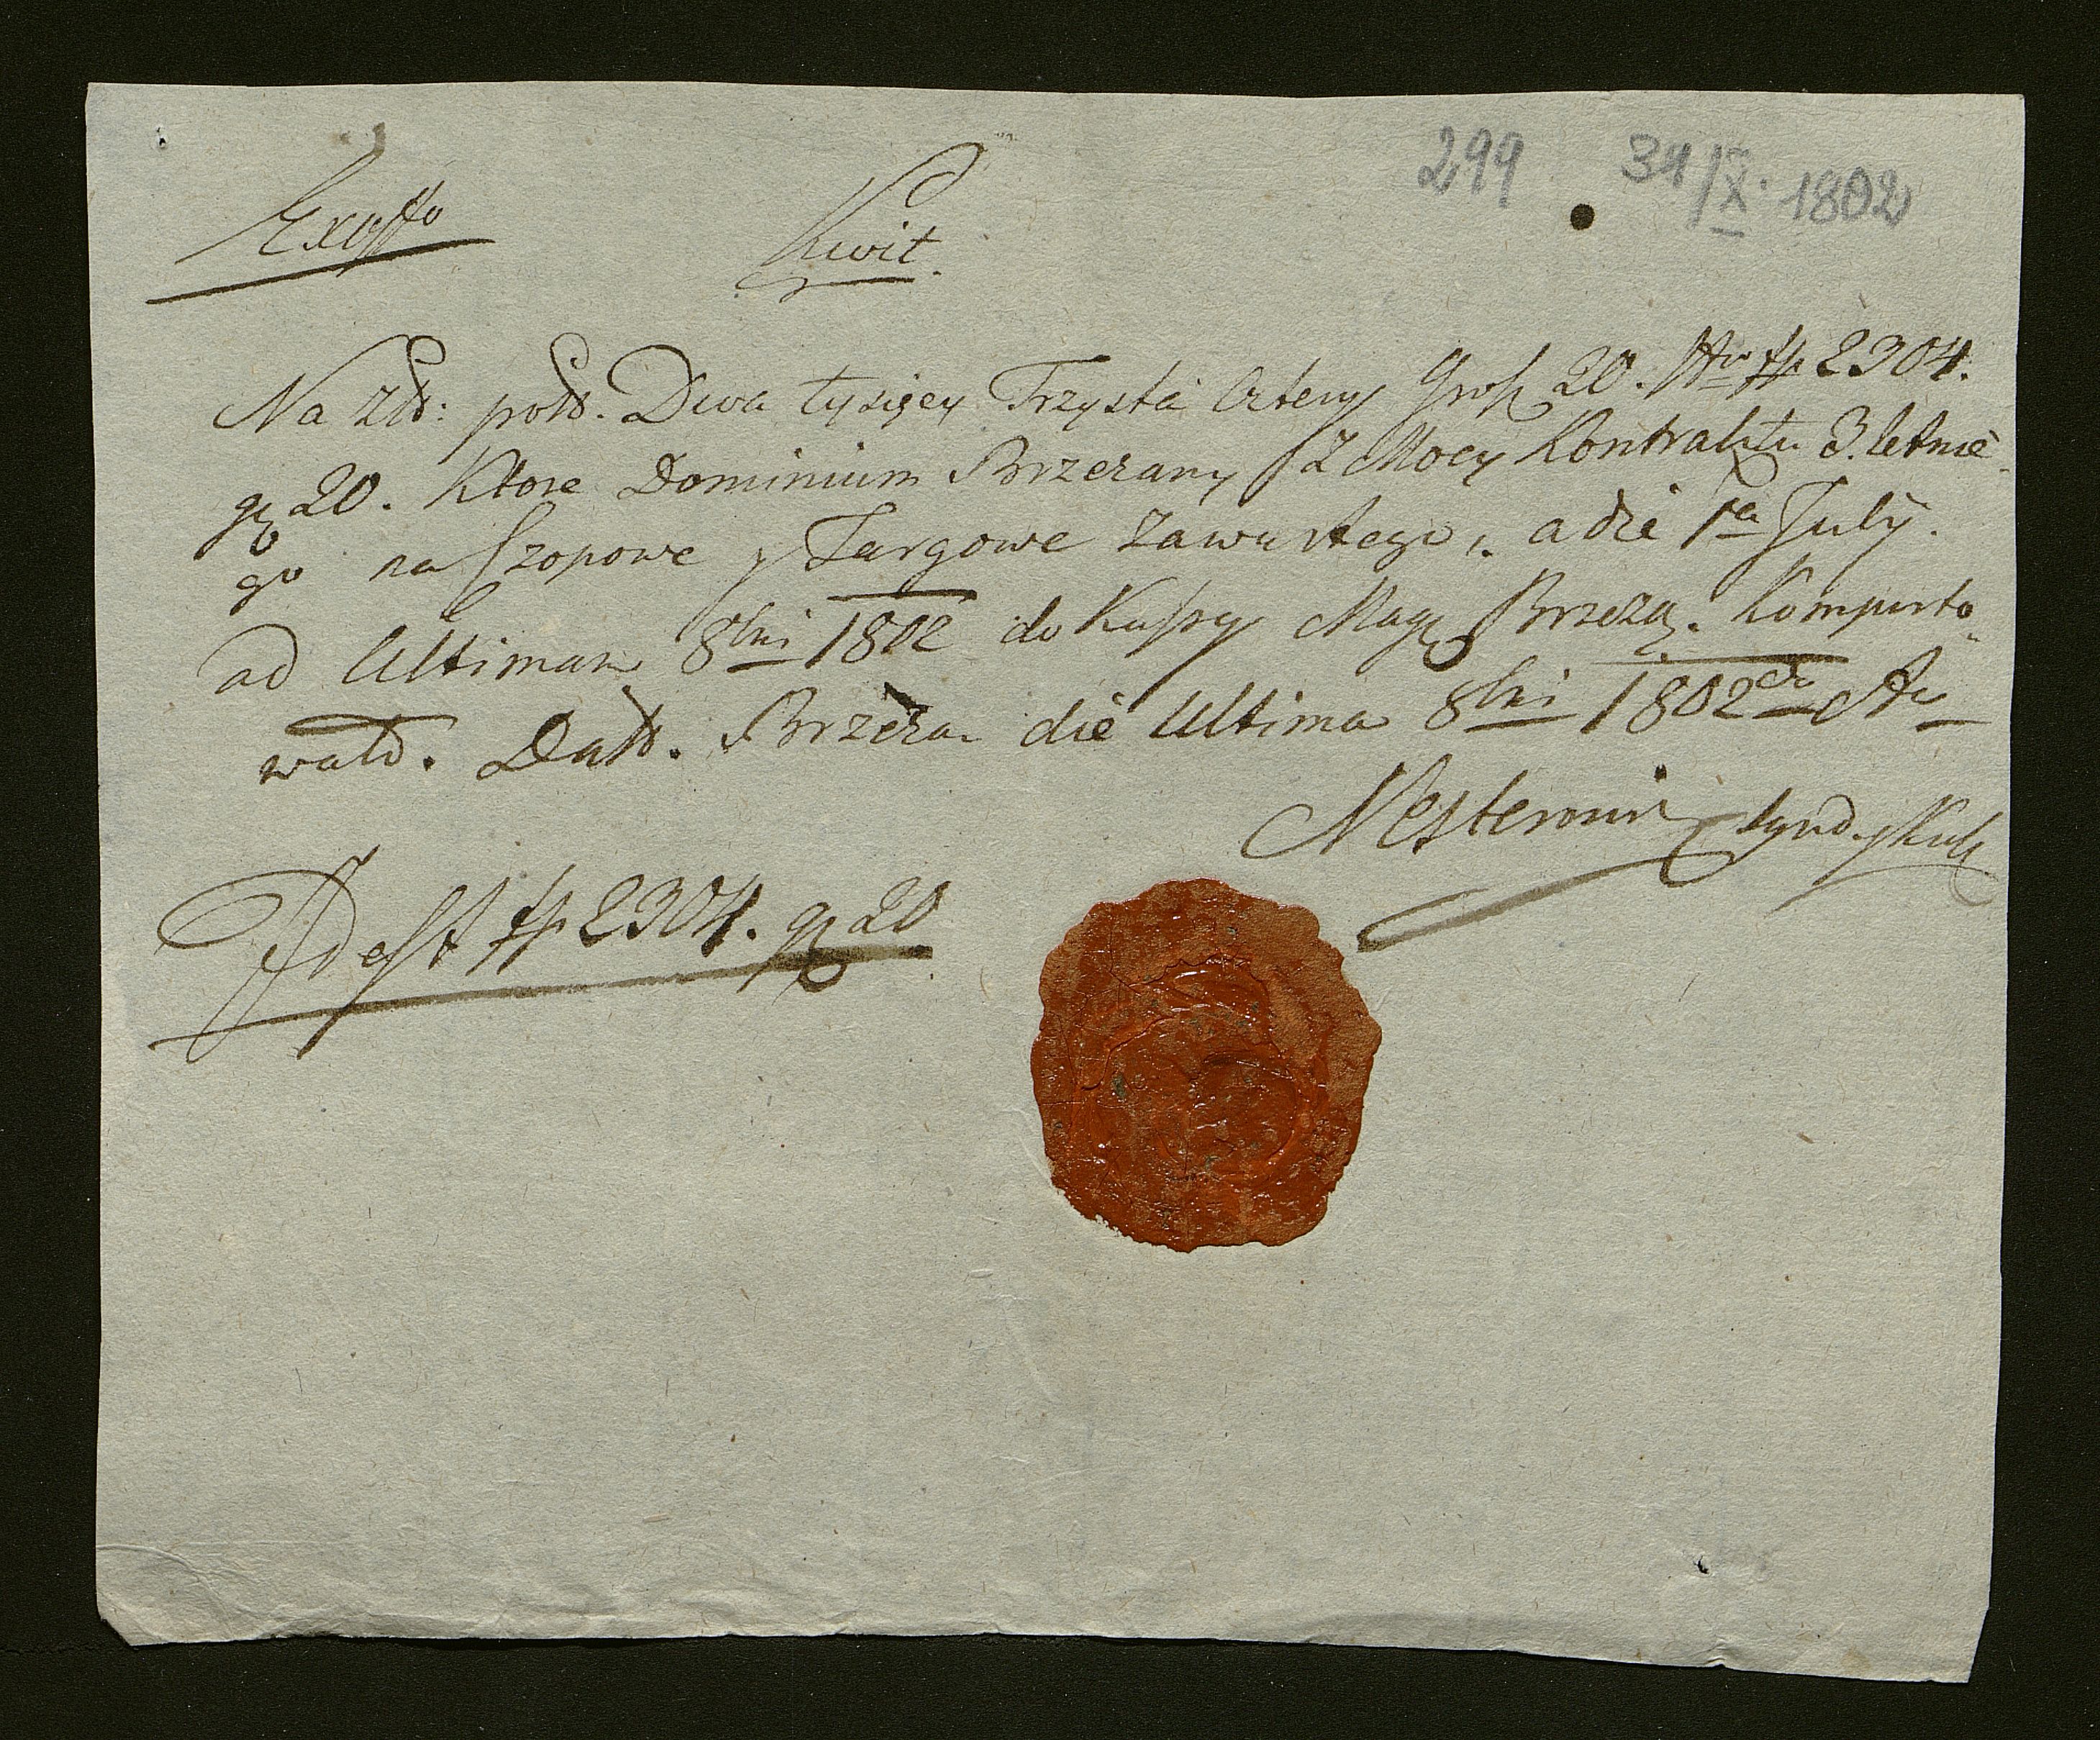 299 31/X. 1802
Exoffo Kwit.
Na Złt: polt. Dwa tysięcy Trzysta Cztery Grosz 20. Nro fp 2304.
gr 20. Ktore Dominium Brzezany z Mocy Kontraktu 3. letnie
go na Czopowe y Targowe zawartego, a die 1ma July.
ad Ultimam 8bris 1802 do Kassy Mag Brzeża. Komporto
wało. Datt. Brzeża die Ultima 8bris 1802do
Nesterowi Syndyk
Id est fp 2304. gr 20